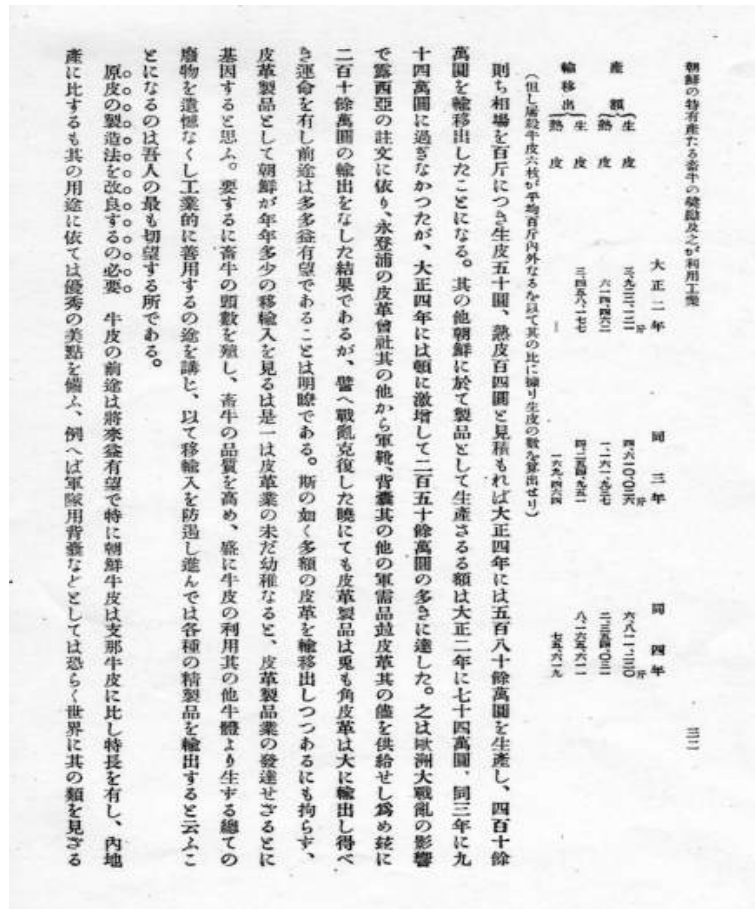 朝鮮の特有產たる畜牛の獎勵及之が利用工業
三二
大正二年
同三年
同四年
產額
生皮
三、九三二、一二一斤
四、六二〇、〇二六斤
六、八一一、二三〇斤
熟皮
六一四、四六二
一、一六一、九三七
二、三五四、〇三一
輸移出
生皮
三、四五八、一七七
四、二五四、九五一
八、一六五、六一一
熟皮
—
一六九、四六四
七五、六一九
(但し屠殺牛皮六枚が平均百斤內外なるを以て其の比に據り生皮の數を算出せり)
則ち相場を百斤につき生皮五十圓、熟皮百四圓と見積もれば大正四年には五百八十餘萬圓を生產し、四百十餘
萬圓を輸移出したことになる。其の他朝鮮に於て製品として生產さるる額は大正二年に七十四萬圓、同三年に九
十四萬圓に過ぎなかつたが、大正四年には頓に激增して二百五十餘萬圓の多きに達した。之は歐洲大戰亂の影響
で露西亞の註文に依り、永登浦の皮革會社其の他から軍靴、背囊其の他の軍需品竝皮革其の儘を供給せし爲め玆に
二百十餘萬圓の輸出をなした結果であるが、譬へ戰亂克復した曉にても皮革製品は兎も角皮革は大に輸出し得べ
き運命を有し前途は多多益有望であることは明瞭である。斯の如く多額の皮革を輸移出しつつあるにも拘らず、
皮革製品として朝鮮が年年多少の移輸入を見るは是一は皮革業の未だ幼稚なると、皮革製品業の發達せざるとに
基因すると思ふ。要するに畜牛の頭數を殖し、畜牛の品質を高め、盛に牛皮の利用其の他牛體より生ずる總ての
廢物を遺憾なくし工業的に善用するの途を講じ、以て移輸入を防遏し進んでは各種の精製品を輸出すると云ふこ
とになるのは吾人の最も切望する所である。
原皮の製造法を改良するの必要 牛皮の前途は將來益有望で特に朝鮮牛皮は支那牛皮に比し特長を有し、內地
產に比するも其の用途に依ては優秀の美點を備ふ、例へば軍隊用背囊などとしては恐らく世界に其の類を見ざる